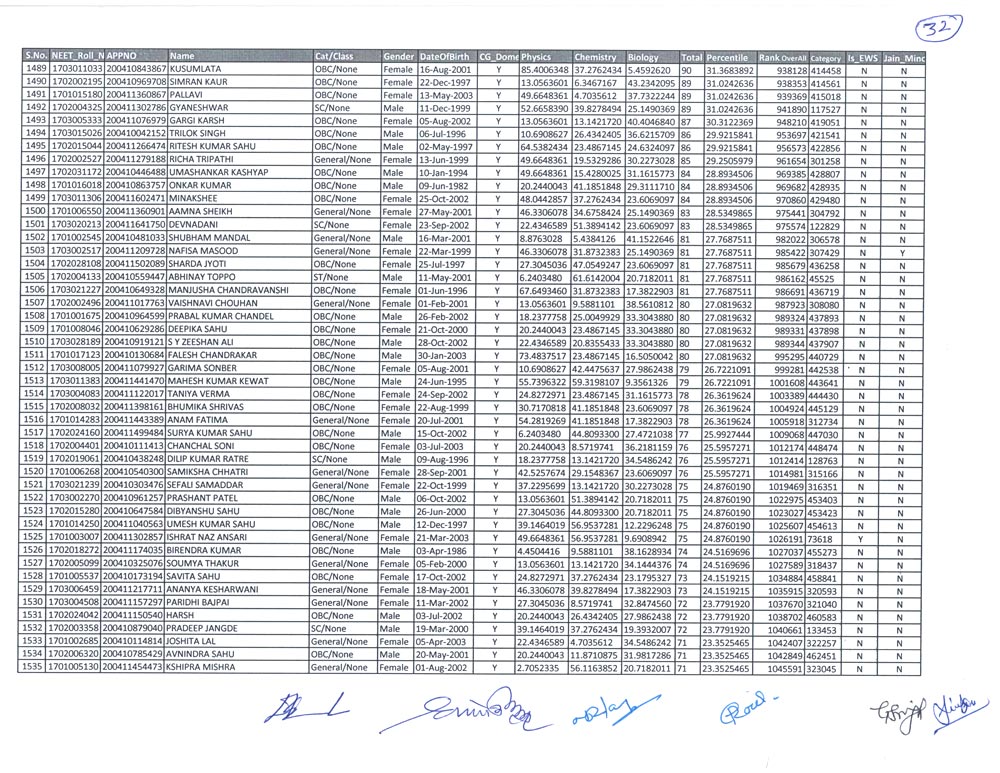 32
S.No. NEET_Roll_N APPNO Name Cat/Class Gender DateOfBirth CG_Dome Physics Chemistry Biology Total Percentile Rank OverAll Category Is_EWS Jain_Mino
1489 1703011033 200410843867 KUSUMLATA OBC/None Female 16-Aug-2001 Y 85.4006348 37.2762434 5.4592620 90 31.3683892 938128 414458 N N
1490 1702002195 200410969708 SIMRAN KAUR OBC/None Female 22-Dec-1997 Y 13.0563601 6.3467167 43.2342095 89 31.0242636 938353 414561 N N
1491 1701015180 200411360867 PALLAVI OBC/None Female 13-May-2003 Y 49.6648361 4.7035612 37.7322244 89 31.0242636 939369 415018 N N
1492 1702004325 200411302786 GYANESHWAR SC/None Male 11-Dec-1999 Y 52.6658390 39.8278494 25.1490369 89 31.0242636 941890 117527 N N
1493 1703005333 200411076979 GARGI KARSH OBC/None Female 05-Aug-2002 Y 13.0563601 13.1421720 40.4046840 87 30.3122369 948210 419051 N N
1494 1703015026 200410042152 TRILOK SINGH OBC/None Male 06-Jul-1996 Y 10.6908627 26.4342405 36.6215709 86 29.9215841 953697 421541 N N
1495 1702015044 200411266474 RITESH KUMAR SAHU OBC/None Male 02-May-1997 Y 64.5382434 23.4867145 24.6324097 86 29.9215841 956573 422856 N N
1496 1702002527 200411279188 RICHA TRIPATHI General/None Female 13-Jun-1999 Y 49.6648361 19.5329286 30.2273028 85 29.2505979 961654 301258 N N
1497 1702031172 200410446488 UMASHANKAR KASHYAP OBC/None Male 10-Jan-1994 Y 49.6648361 15.4280025 31.1615773 84 28.8934506 969385 428807 N N
1498 1701016018 200410863757 ONKAR KUMAR OBC/None Male 09-Jun-1982 Y 20.2440043 41.1851848 29.3111710 84 28.8934506 969682 428935 N N
1499 1703011306 200411602471 MINAKSHEE OBC/None Female 25-Oct-2002 Y 48.0442857 37.2762434 23.6069097 84 28.8934506 970860 429480 N N
1500 1701006550 200411360901 AAMNA SHEIKH General/None Female 27-May-2001 Y 46.3306078 34.6758424 25.1490369 83 28.5349865 975441 304792 N N
1501 1703020213 200411641750 DEVNADANI SC/None Female 23-Sep-2002 Y 22.4346589 51.3894142 23.6069097 83 28.5349865 975574 122829 N N
1502 1701002545 200410481033 SHUBHAM MANDAL General/None Male 16-Mar-2001 Y 8.8763028 5.4384126 41.1522646 81 27.7687511 982022 306578 N N
1503 1703002517 200411209728 NAFISA MASOOD General/None Female 22-Mar-1999 Y 46.3306078 31.8732383 25.1490369 81 27.7687511 985422 307429 N Y
1504 1702028108 200411502089 SHARDA JYOTI OBC/None Female 25-Jul-1997 Y 27.3045036 47.0549247 23.6069097 81 27.7687511 985679 436258 N N
1505 1702004133 200410559447 ABHINAY TOPPO ST/None Male 11-May-2001 Y 6.2403480 61.6142004 20.7182011 81 27.7687511 986162 45525 N N
1506 1703021227 200410649328 MANJUSHA CHANDRAVANSHI OBC/None Female 01-Jun-1996 Y 67.6493460 31.8732383 17.3822903 81 27.7687511 986691 436719 N N
1507 1702002496 200411017763 VAISHNAVI CHOUHAN General/None Female 01-Feb-2001 Y 13.0563601 9.5881101 38.5610812 80 27.0819632 987923 308080 N N
1508 1701001675 200410964599 PRABAL KUMAR CHANDEL OBC/None Male 26-Feb-2002 Y 18.2377758 25.0049929 33.3043880 80 27.0819632 989324 437893 N N
1509 1701008046 200410629286 DEEPIKA SAHU OBC/None Female 21-Oct-2000 Y 20.2440043 23.4867145 33.3043880 80 27.0819632 989331 437898 N N
1510 1703028189 200410919121 S Y ZEESHAN ALI OBC/None Male 28-Oct-2002 Y 22.4346589 20.8355433 33.3043880 80 27.0819632 989344 437907 N N
1511 1701017123 200410130684 FALESH CHANDRAKAR OBC/None Male 30-Jan-2003 Y 73.4837517 23.4867145 16.5050042 80 27.0819632 995295 440729 N N
1512 1703008005 200411079927 GARIMA SONBER OBC/None Female 05-Aug-2001 Y 10.6908627 42.4475637 27.9862438 79 26.7221091 999281 442538 N N
1513 1703011383 200411441470 MAHESH KUMAR KEWAT OBC/None Male 24-Jun-1995 Y 55.7396322 59.3198107 9.3561326 79 26.7221091 1001608 443641 N N
1514 1703004083 200411122017 TANIYA VERMA OBC/None Female 24-Sep-2002 Y 24.8272971 23.4867145 31.1615773 78 26.3619624 1003389 444430 N N
1515 1702008032 200411398161 BHUMIKA SHRIVAS OBC/None Female 22-Aug-1999 Y 30.7170818 41.1851848 23.6069097 78 26.3619624 1004924 445129 N N
1516 1701014283 200411443389 ANAM FATIMA General/None Female 20-Jul-2001 Y 54.2819269 41.1851848 17.3822903 78 26.3619624 1005918 312734 N N
1517 1702024160 200411499484 SURYA KUMAR SAHU OBC/None Male 15-Oct-2002 Y 6.2403480 44.8093300 27.4721038 77 25.9927444 1009068 447030 N N
1518 1702004401 200410111413 CHANCHAL SONI OBC/None Female 03-Jul-2003 Y 20.2440043 8.5719741 36.2181159 76 25.5957271 1012174 448474 N N
1519 1702019061 200410438248 DILIP KUMAR RATRE SC/None Male 09-Aug-1996 Y 18.2377758 13.1421720 34.5486242 76 25.5957271 1012414 128763 N N
1520 1701006268 200410540300 SAMIKSHA CHHATRI General/None Female 28-Sep-2001 Y 42.5257674 29.1548367 23.6069097 76 25.5957271 1014981 315166 N N
1521 1703021239 200410303476 SEFALI SAMADDAR General/None Female 22-Oct-1999 Y 37.2295699 13.1421720 30.2273028 75 24.8760190 1019469 316351 N N
1522 1703002270 200410961257 PRASHANT PATEL OBC/None Male 06-Oct-2002 Y 13.0563601 51.3894142 20.7182011 75 24.8760190 1022975 453403 N N
1523 1702015280 200410647584 DIBYANSHU SAHU OBC/None Male 26-Jun-2000 Y 27.3045036 44.8093300 20.7182011 75 24.8760190 1023027 453423 N N
1524 1701014250 200411040563 UMESH KUMAR SAHU OBC/None Male 12-Dec-1997 Y 39.1464019 56.9537281 12.2296248 75 24.8760190 1025607 454613 N N
1525 1701003007 200411302857 ISHRAT NAZ ANSARI General/None Female 21-Mar-2003 Y 49.6648361 56.9537281 9.6908942 75 24.8760190 1026191 73618 Y N
1526 1702018272 200411174035 BIRENDRA KUMAR OBC/None Male 03-Apr-1986 Y 4.4504416 9.5881101 38.1628934 74 24.5169696 1027037 455273 N N
1527 1702005099 200410325076 SOUMYA THAKUR General/None Female 05-Feb-2000 Y 13.0563601 13.1421720 34.1444376 74 24.5169696 1027589 318437 N N
1528 1701005537 200410173194 SAVITA SAHU OBC/None Female 17-Oct-2002 Y 24.8272971 37.2762434 23.1795327 73 24.1519215 1034884 458841 N N
1529 1703006459 200411217711 ANANYA KESHARWANI General/None Female 18-May-2001 Y 46.3306078 39.8278494 17.3822903 73 24.1519215 1035915 320593 N N
1530 1703004508 200411157297 PARIDHI BAJPAI General/None Female 11-Mar-2002 Y 27.3045036 8.5719741 32.8474560 72 23.7791920 1037670 321040 N N
1531 1702024042 200411150540 HARSH OBC/None Male 03-Jul-2002 Y 20.2440043 26.4342405 27.9862438 72 23.7791920 1038702 460583 N N
1532 1702003358 200410879040 PRADEEP JANGDE SC/None Male 19-Mar-2000 Y 39.1464019 37.2762434 19.3932007 72 23.7791920 1040661 133453 N N
1533 1701002685 200410114814 JOSHITA LAL General/None Female 05-Apr-2003 Y 22.4346589 4.7035612 34.5486242 71 23.3525465 1042407 322257 N N
1534 1702006320 200410785429 AVNINDRA SAHU OBC/None Male 20-May-2001 Y 20.2440043 11.8710875 31.9817286 71 23.3525465 1042849 462451 N N
1535 1701005130 200411454473 KSHIPRA MISHRA General/None Female 01-Aug-2002 Y 2.7052335 56.1163852 20.7182011 71 23.3525465 1045591 323045 N N